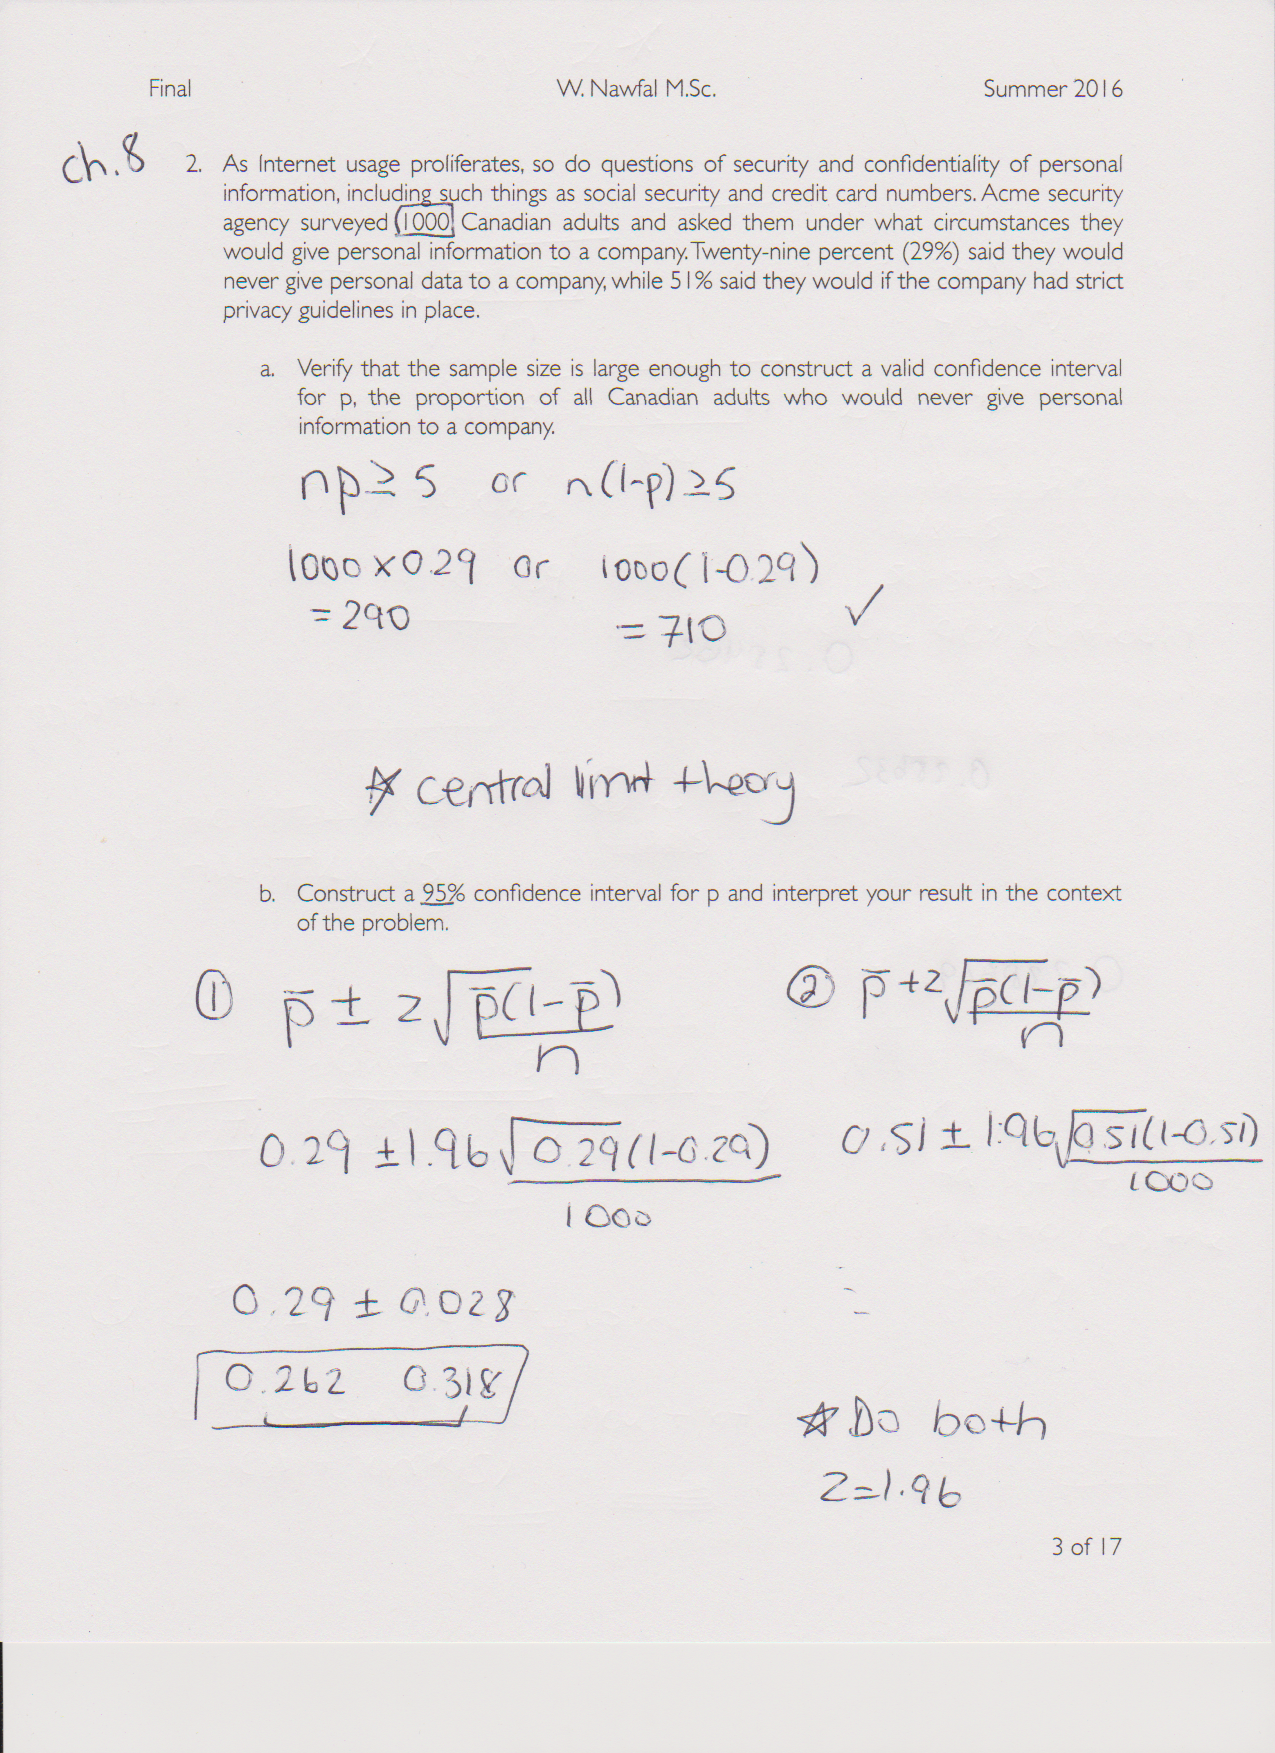 Final W. Nawfal M.Sc. Summer 2016
ch.8
2. As Internet usage proliferates, so do questions of security and confidentiality of personal
information, including such things as social security and credit card numbers. Acme security
agency surveyed 1000 Canadian adults and asked them under what circumstances they
would give personal information to a company. Twenty-nine percent (29%) said they would
never give personal data to a company, while 51% said they would if the company had strict
privacy guidelines in place.
a. Verify that the sample size is large enough to construct a valid confidence interval
for p, the proportion of all Canadian adults who would never give personal
information to a company.
np ≥ 5 or n(1-p) ≥ 5
1000 x 0.29 or 1000(1-0.29)
= 290 = 710 ✓
☆ central limit theory
b. Construct a 95% confidence interval for p and interpret your result in the context
of the problem.
① p̄ ± z√p̄(1-p̄) ② p̄ + z√p̄(1-p̄)
n n
0.29 ± 1.96√0.29(1-0.29) 0.51 ± 1.96√0.51(1-0.51)
1000 1000
0.29 ± 0.028
0.262 0.318
☆ Do both
z=1.96
3 of 17